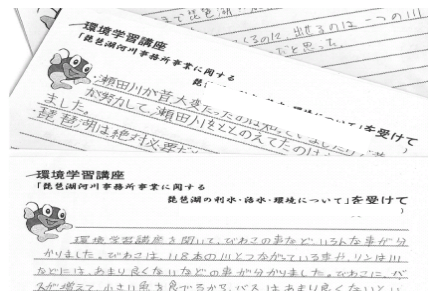 まで琵琶湖
くるのに、出るのは一つの川
だと思った。
環境学習講座
「琵琶湖河川事務所事業に関する
環境について」を受けて
瀬田川が昔、大変だったのは知っていましたが
が努力して、瀬田川をととのえてたのは
ました。
琵琶湖は絶対必要だ
環境学習講座
「琵琶湖河川事務所事業に関する
琵琶湖の利水・治水・環境について」を受けて
)
環境学習講座を聞いて、びわこの事など、いろんな事が分
かりました。びわこは、118本の川とつながっている事や、リンは川
などには、あまり良くないなどの事が分かりました。びわこに、バ
スが増えて、小さい魚を食べるから、バスはあまり良くないとい